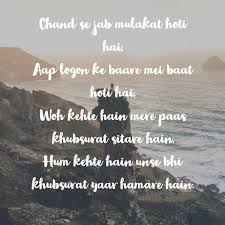 Chand se jab mulakat hoti
hai,
Aap logon ke baare mei baat
hoti hai,
Woh kehte hain mere paas
khubsurat sitare hain,
Hum kehte hain unse bhi
khubsurat yaar hamare hain.